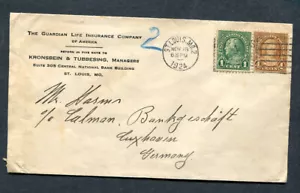 THE GUARDIAN LIFE INSURANCE COMPANY
OF AMERICA
RETURN IN FIVE DAYS TO
KRONSBEIN & TUBBESING, MANAGERS
SUITE 305 CENTRAL NATIONAL BANK BUILDING
ST. LOUIS, MO.
2
ST. LOUIS, MO.
NOV 19
1924
1
4
Mr Harms
Calman, Bankgeschäft
Cuxhaven
Germany